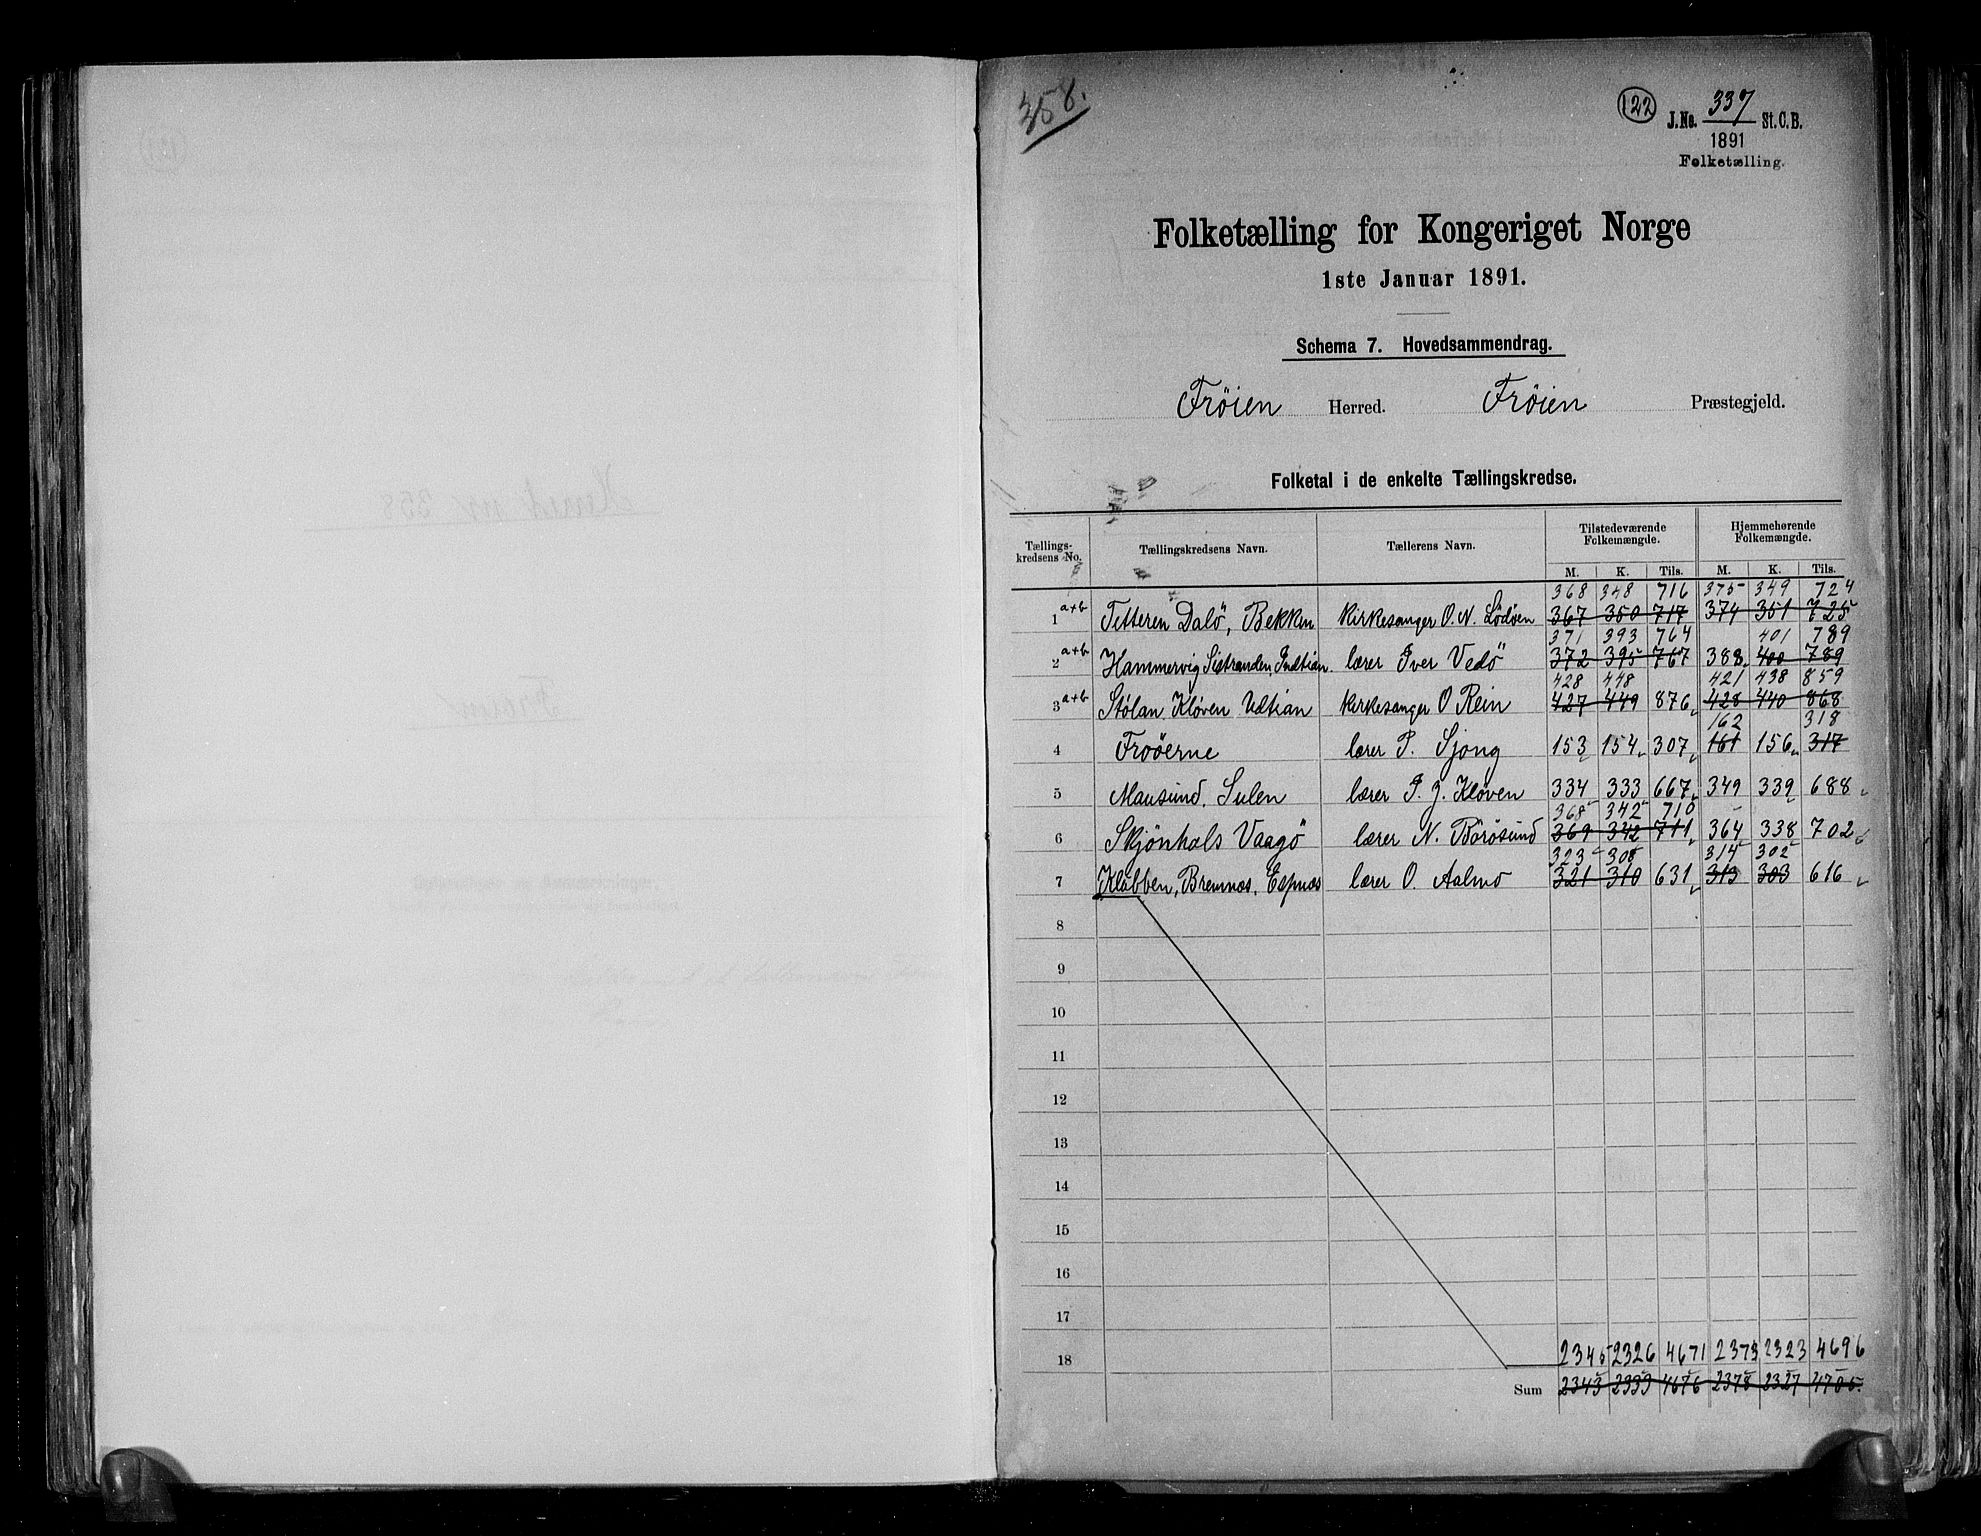 358.
122
J.No. 337 St.C.B.
1891
Folketælling.
Folketælling for Kongeriget Norge
1ste Januar 1891.
Schema 7. Hovedsammendrag.
Frøien Herred. Frøien Præstegjeld.
Folketal i de enkelte Tællingskredse.
Tællings-kredsens No. Tællingskredsens Navn. Tællerens Navn. Tilstedeværende Folkemængde. Hjemmehørende Folkemængde.
M. K. Tils. M. K. Tils.
368 348 716 375 349 724
1 a+b Titteren Dalö, Bekken kirkesanger O. N. Lödöen 367 350 717 374 351 725
371 393 764 401 789
2 a+b Hammervig Sistranden, Indtian. lærer Iver Vedö 372 395 767 388 400 789
428 448 421 438 859
3 a+b Stølan Kløven Udtian kirkesanger O Rein 427 449 876 428 440 868
162 318
4 Froöerne lærer P. Sjong 153 154 307 161 156 317
5 Mausund, Sulen lærer P. J. Kløven 334 333 667 349 339 688
368 342 710
6 Skjönhals Vaagö lærer N. Börösund 369 342 711 364 338 702
323 308 314 302
7 Klubben, Bremnæs, Espnæs lærer O. Aalmo 321 310 631 313 303 616
8
9
10
11
12
13
14
15
16
17
18 2345 2326 4671 2373 2323 4696
Sum 2343 2333 4676 2378 2327 4705